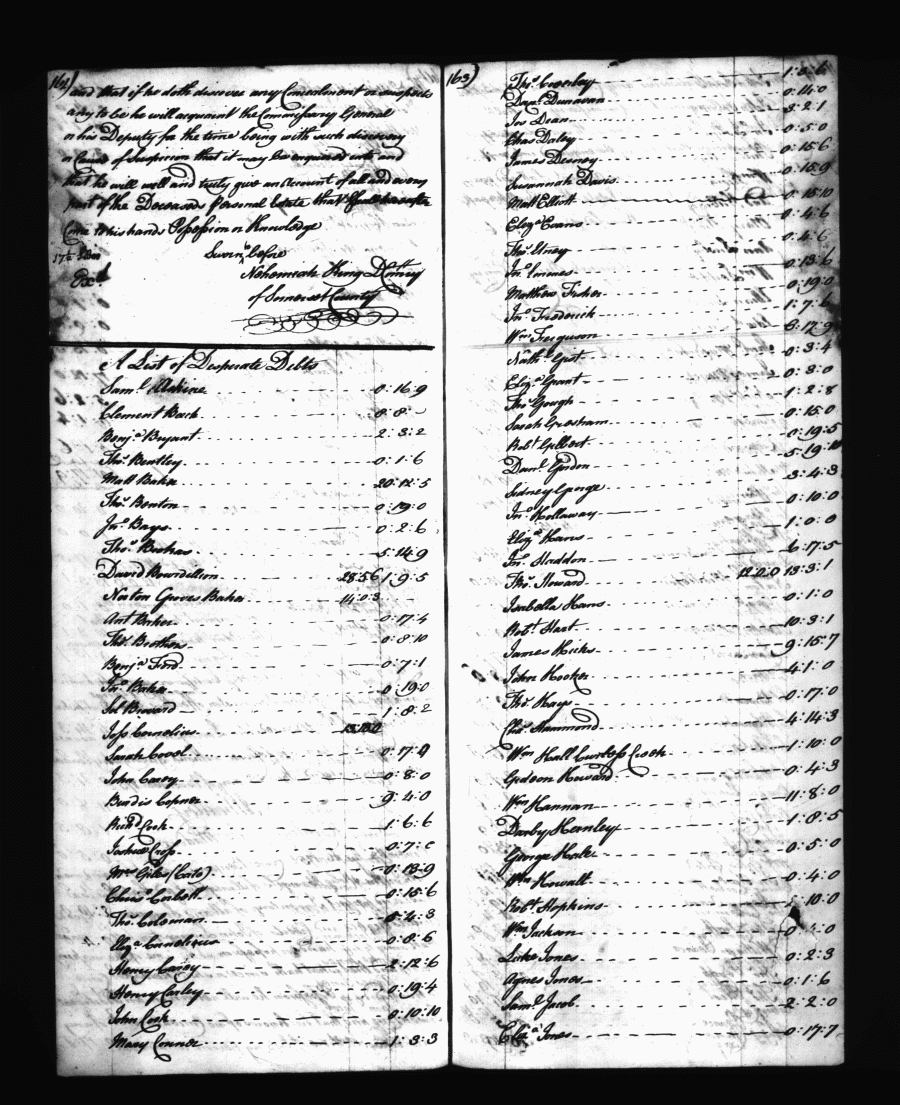 162)
and that if he doth discover any Concealment or suspects
any to be he will acquaint the Commissary General
or his Deputy for the time being with such discovery
or Cause of Suspicion that it may be enquired into and
that he will well and truly give an Account of all and every
part of the Deceaseds Personal Estate that shall hereafter
Come to his hands Possession or Knowledge
Sworn before
Nehemiah King D Comry
of Somerset County
A List of Desperate Debts
Saml. 0:16:9
Clement Bach 8:8:-
Benja. Bryant 2:3:2
Thos. Bentley 0:1:6
Matt Baker 20:12:5
Thos. Benton 0:19:0
Jno. Bays 0:2:6
Thos. 5:14:9
David Bourdillon 2856 1:9:5
Norton Groves Baker 14:0:3
Ant Baker 0:17:4
Thos. Brothers 0:8:10
Benja. Ford 0:7:1
Jno. Baker 0:19:0
Sol Brevard 1:8:2
Joss Cornelius
Sarah Cood 0:17:9
John Casey 0:8:0
Burdis Copner 9:4:0
Richd Cook 1:6:6
Joshua Cross 0:7:
Mrs Giles (Cato) 0:13:9
Chrisr. Corbett 0:15:6
Thos. Coleman 0:4:3
Eliza. Cornelius 0:8:6
Henry Casey 2:12:6
Henry Carley 0:19:4
John Cook 0:10:10
Mary Conner 1:3:3
163)
Thos. Coverley 1:5:6
Danl. Dunnavan 0:14:0
Jos Dean 3:2:1
Chas Daley 0:5:0
James Desney 0:15:6
Susannah Davis 0:15:9
Matt Elliott 0:15:10
Eliza Evans 0:4:6
Thos. Etney 0:4:6
Jno. Emmes 0:13:6
Matthew Fisher 0:19:0
Jno. Frederick 1:7:6
Wm Ferguson 3:17:9
Nathl. Gist 0:3:4
Eliza Grant 0:3:0
Thos Gough 1:2:8
Sarah Gresham 0:15:0
Robt Gilbert 0:19:5
Danl. Gordon 5:19:10
Sidney George 3:4:3
Jno. Hollaway 0:10:0
Eliza Harris 1:0:0
Jno. Haddon 6:17:5
Thos. Howard 1200 13:3:1
Isabella Harris 0:1:0
Robt. Hart 10:3:1
James Hicks 9:15:7
John Hooker 4:1:0
Thos. Hays 0:17:0
Chas. Hammond 4:14:3
Wm Hall Curtess Creek 1:10:0
Gideon Howard 0:4:3
Wm Hannan 11:8:0
Darby Hernley 1:8:5
George Hale 0:5:0
Wm Howalt 0:4:0
Robt Hopkins :10:0
Wm Jackson 0:4:0
Luke Jones 0:2:3
Agnes Jones 0:1:6
Saml. Jacob 2:2:0
Eliza. Jones 0:17:7